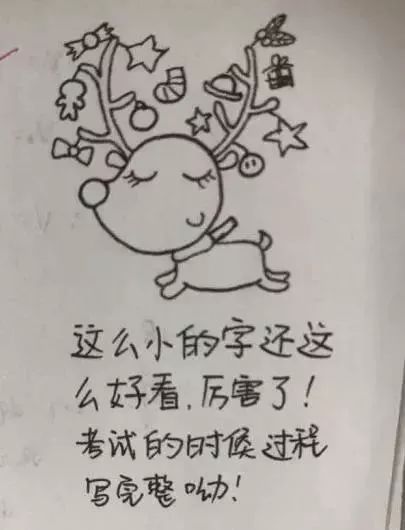 这么小的字还这
么好看，厉害了！
考试的时候过程
写完整呦！